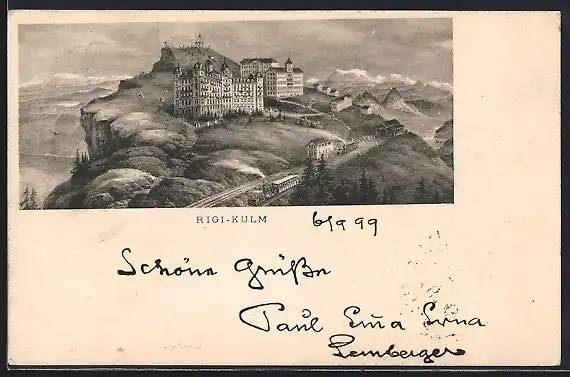 RIGI-KULM
6/9 99
Schöne Grüße
Paul Ema Erna
Lemberger